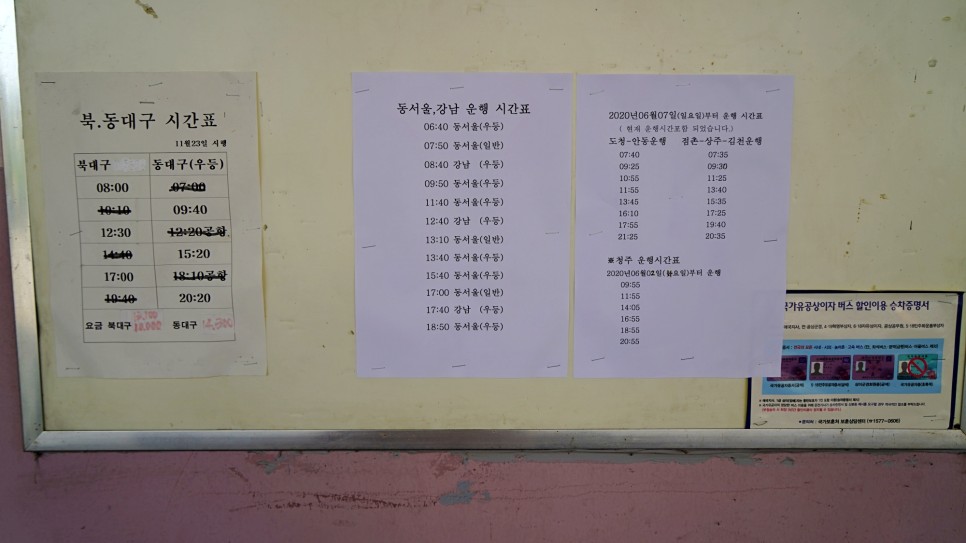 북.동대구 시간표
11월23일 시행
북대구 동대구(우등)
08:00 07:00
10:10 09:40
12:30 12:20공항
14:40 15:20
17:00 18:10공항
19:40 20:20
요금 북대구 동대구
동서울,강남 운행 시간표
06:40 동서울(우등)
07:50 동서울(일반)
08:40 강남 (우등)
09:50 동서울(우등)
11:40 동서울(우등)
12:40 강남 (우등)
13:10 동서울(일반)
13:40 동서울(우등)
15:40 동서울(우등)
17:00 동서울(일반)
17:40 강남 (우등)
18:50 동서울(우등)
2020년06월07일(일요일)부터 운행 시간표
( 현재 운행시간표함 되었습니다.)
도청-안동운행 점촌-상주-김천운행
07:40 07:35
09:25 09:30
10:55 11:25
11:55 13:40
13:45 15:35
16:10 17:25
17:55 19:40
21:25 20:35
※청주 운행시간표
2020년06월02일(화요일)부터 운행
09:55
11:55
14:05
16:55
18:55
20:55
국가유공상이자 버스 할인이용 승차증명서
국가보훈처 보훈상담센터 (☎1577-0606)